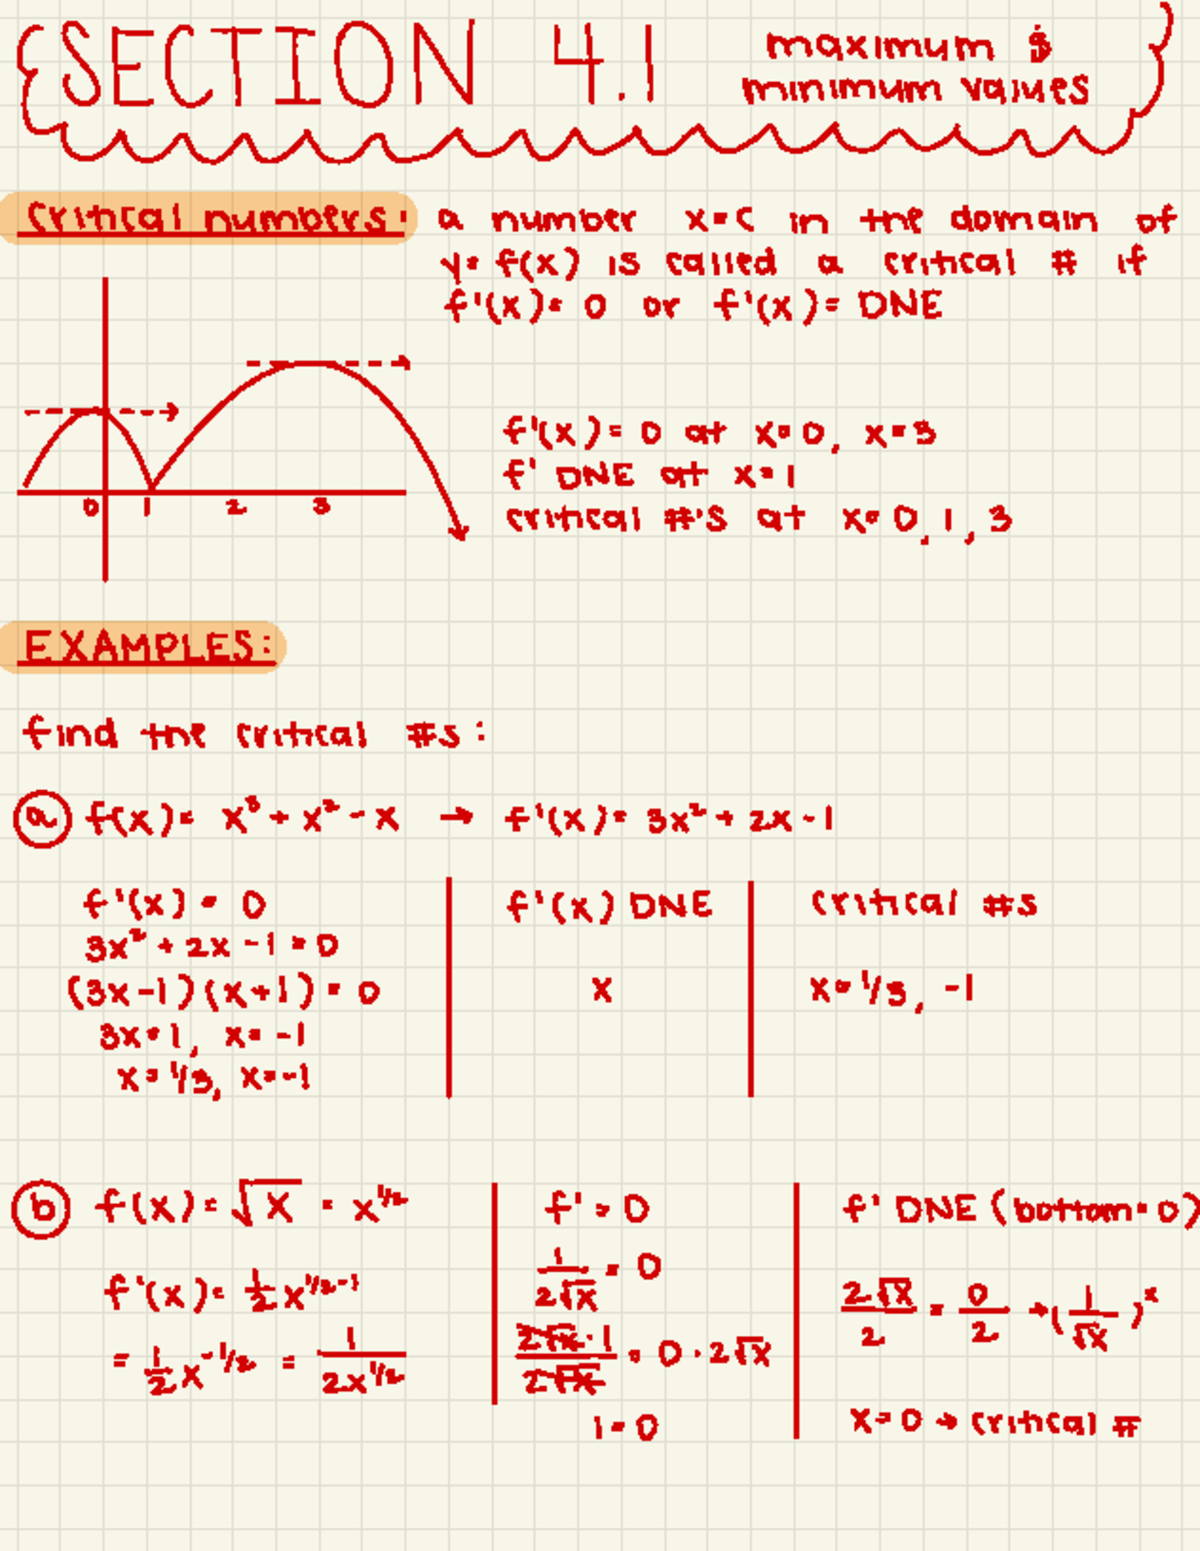 SECTION 4.1
maximum $
minimum values
critical numbers: a number x=c in the domain of
y= f(x) is called a critical # if
f'(x)= 0 or f'(x)= DNE
0 1 2 3
f'(x)= 0 at x=0, x=3
f' DNE at x=1
critical #'s at x=0, 1, 3
EXAMPLES:
find the critical #s:
ⓐ f(x)= x³ + x² - x → f'(x)= 3x² + 2x - 1
f'(x) = 0
3x² + 2x - 1 = 0
(3x-1)(x+1) = 0
3x=1, x= -1
x= 1/3, x=-1
f'(x) DNE
x
critical #s
x= 1/3, -1
ⓑ f(x)= √x = x^1/2
f'(x)= 1/2 x^1/2-1
= 1/2 x^-1/2 = 1/2x^1/2
f' = 0
1/2√x = 0
2√x·1/2√x = 0·2√x
1=0
f' DNE (bottom=0)
2√x/2 = 0/2 → (1/√x)^x
x=0 → critical #